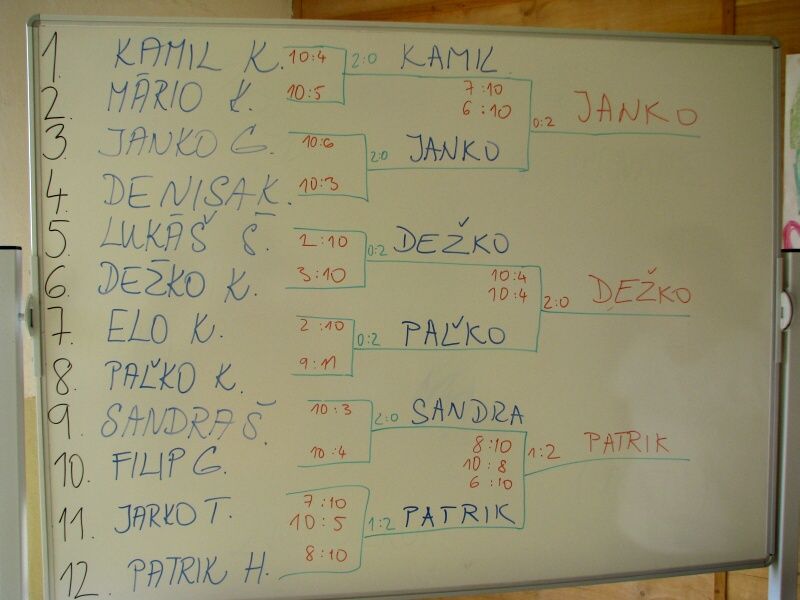 1. KAMIL K. 10:4 2:0 KAMIL
2. MÁRIO K. 10:5 7:10
6:10 0:2 JANKO
3. JANKO G. 10:6
2:0 JANKO
4. DENISA K. 10:3
5. LUKÁŠ Š. 2:10 0:2 DEŽKO
6. DEŽKO K. 3:10 10:4
10:4 2:0 DEŽKO
7. ELO K. 2:10
0:2 PAĽKO
8. PAĽKO K. 9:11
9. SANDRA Š. 10:3 2:0 SANDRA
10. FILIP G. 10:4 8:10 1:2 PATRIK
10:8
6:10
11. JARKO T. 7:10
10:5 1:2 PATRIK
12. PATRIK H. 8:10